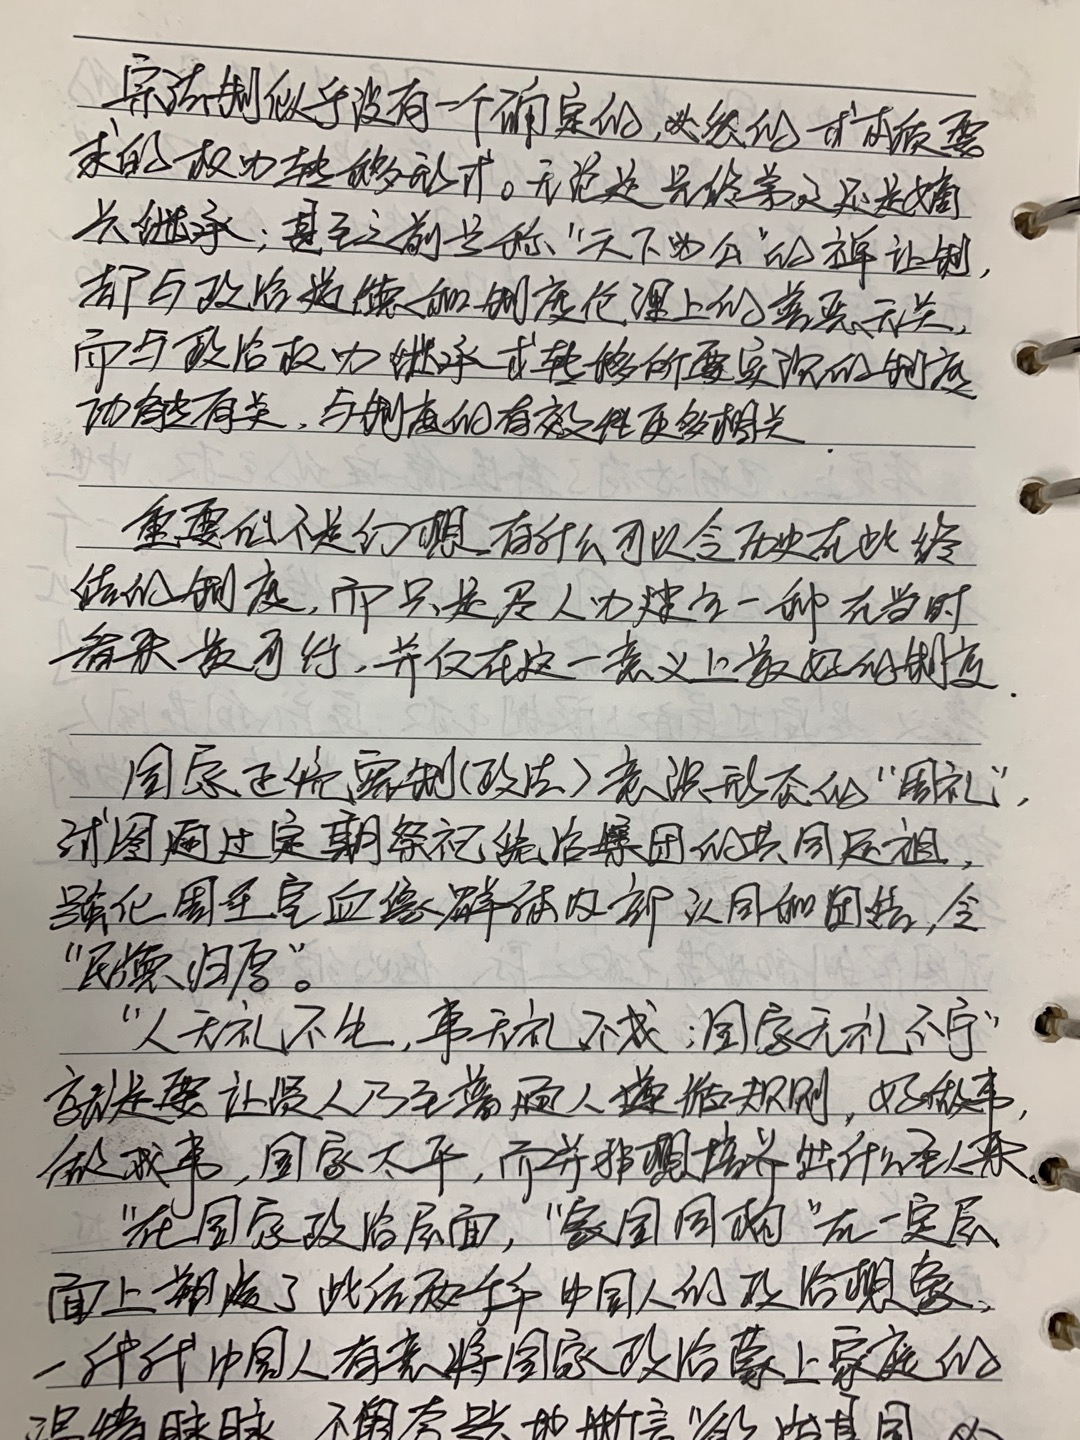 宗法制似乎没有一个确定的,必然的或本质要
求的权力转移形式。无论是兄终弟及还是嫡
长继承;甚至之前号称“天下为公”的禅让制,
都与政治道德和制度伦理上的善恶无关,
而与政治权力继承或转移所要实现的制度
功能有关,与制度的有效性更多相关.
重要的不是幻想有什么可以令历史在此终
结的制度,而只是尽人力建立一种在当时
看来最可行,并仅在这一意义上最好的制度.
国家正统宪制(政法)意识形态的“周礼”,
试图通过定期祭祀统治集团的共同远祖,
强化周王室血缘群体内部认同和团结,令
“民德归厚”。
“人无礼不生,事无礼不成;国家无礼不宁”
就是要让贤人乃至普通人遵循规则,好做事,
做成事,国家太平,而并非想培养出什么圣人来.
“在国家政治层面,“家国同构”在一定层
面上塑成了此后数千年中国人的政治想象,
一代代中国人有意将国家政治蒙上家庭的
温情脉脉,不